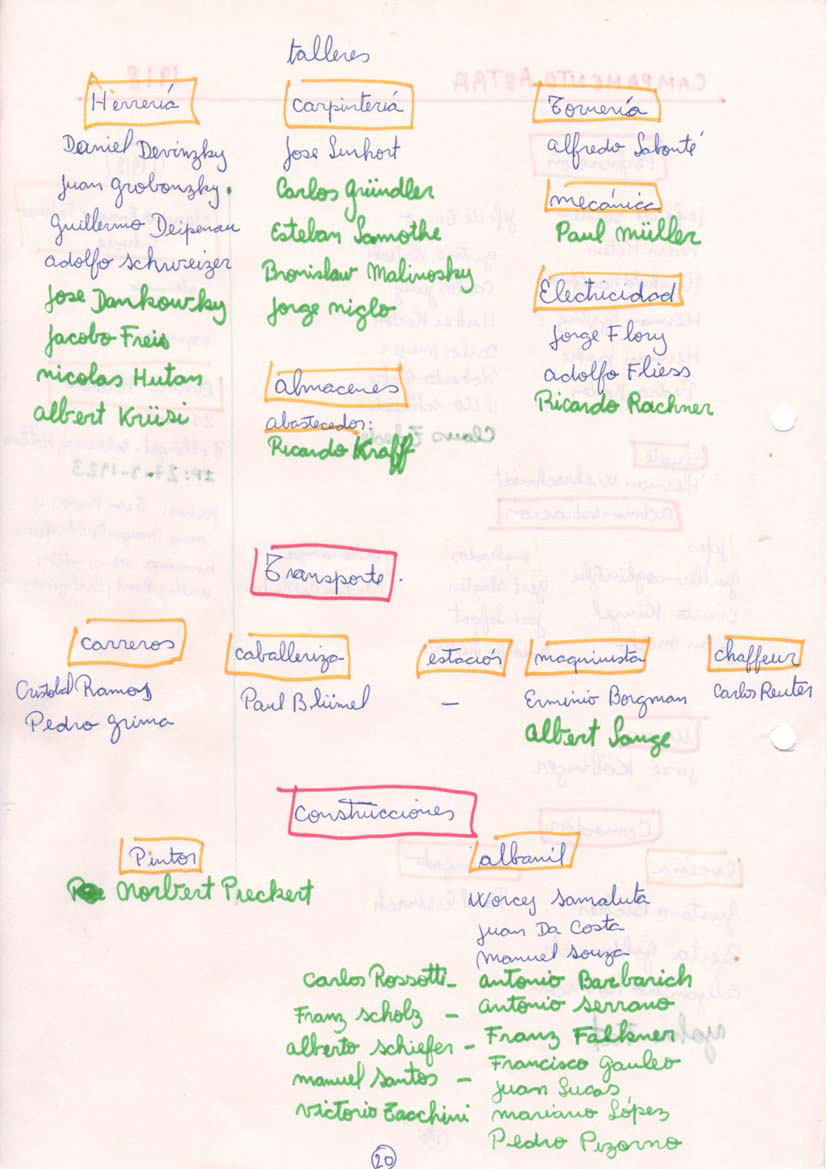 talleres
Herreriá
Daniel Devinzky
Juan Grobonzky.
Guillermo Deipenau
adolfo schweizer
Jose Dankowky
Jacobo Freis
nicolas Hutan
albert Krüsi
Carpinteriá
Jose Sinhort
Carlos Gründler
Esteban Samothe
Bronislaw Malinosky
Jorge niglo
almacenes
abastecedos:
Ricardo Kraff
Tornería
alfredo Sabonté
mecánica
Paul Müller
Electricidad
Jorge Flory
adolfo Fliess
Ricardo Rachner
Transporte.
carreros
Cristobal Ramos
Pedro Grima
caballeriza
Paul Blümel
estación
—
maquinista
Erminio Borgman
albert Sange
chaffeur
Carlos Reuter
Construcciones
Pintor
Norbert Preckert
albanil
Worcey Samaluta
Juan Da Costa
Manuel Souza.
Carlos Rossotti - antonio Barbarich
Franz Scholz - antonio Serrano
alberto Schiefer - Franz Falkner
Francisco Gauleo
manuel Santos - Juan Lucas
Victorio Zacchini mariano López
Pedro Pizorno
20